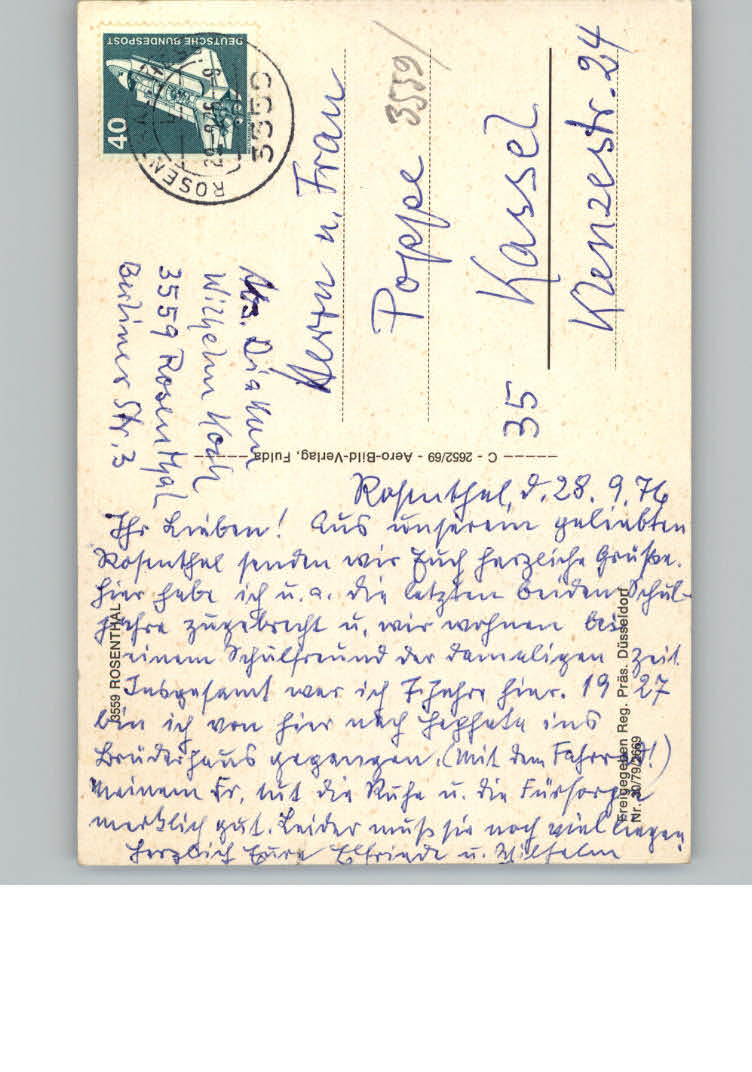 DEUTSCHE BUNDESPOST
40
ROSEN
3559
Abs. Diakon
Wilhelm Koch
3559 Rosenthal
Berliner Str. 3
Herrn u. Frau
Poppe
3559/
35 Kassel
24
C - 2652/69 - Aero-Bild-Verlag, Fulda
3559 ROSENTHAL
Rosenthal, d. 28. 9. 76
Ihr Lieben! Aus unserem geliebten
Rosenthal senden wir Euch herzliche Grüße.
Hier habe ich u. a. die letzten beiden Schul-
jahre zugebracht u. wir wohnen bei
einem Schulfreund der damaligen Zeit.
Insgesamt war ich 7 Jahre hier. 1927
bin ich von hier nach Hephata ins
Brüderhaus gegangen. (Mit dem Fahrrad!)
Meinem Fr. tut die Ruhe u. die Fürsorge
merklich gut. Leider muß sie noch viel liegen
Herzlich Eure Elfriede u. Wilhelm
Freigegeben Reg. Präs. Düsseldorf
Nr. 30/79/2669